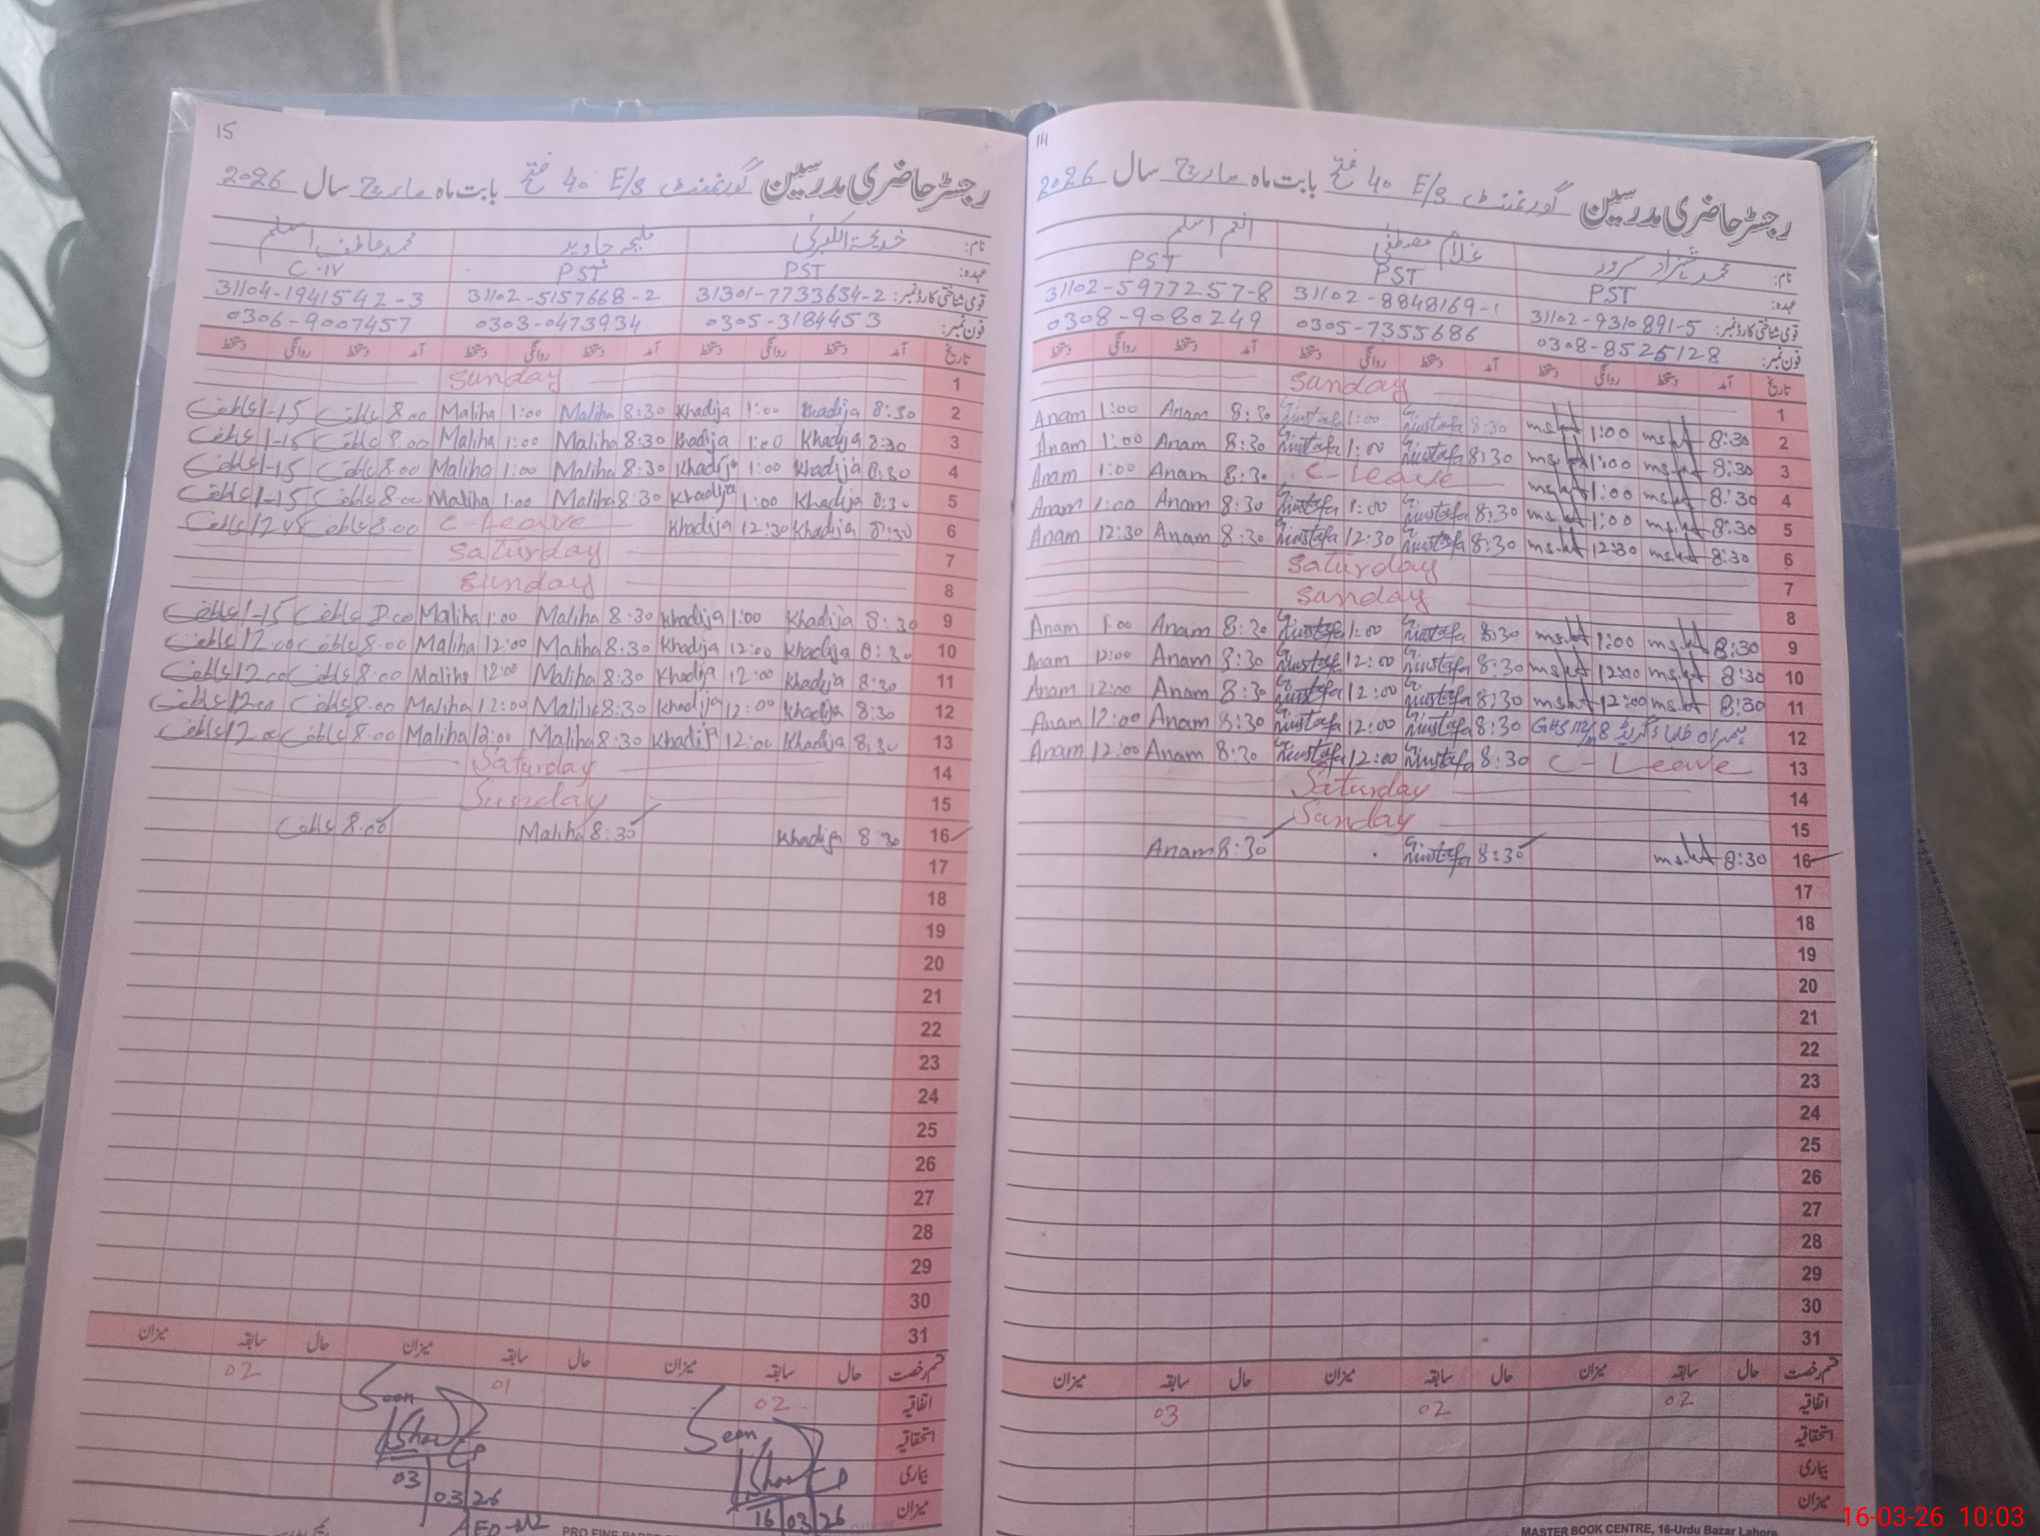 15
رجسٹر حاضری مدرسین گورنمنٹ E/S 40 فتح بابت ماہ مارچ سال 2026
نام: خدیجۃ الکبریٰ ملیحہ جاوید محمد عاطف اسلم
عہدہ: PST PST C-IV
قومی شناختی کارڈ نمبر: 31301-7733654-2 31102-5157668-2 31104-1941542-3
فون نمبر: 0305-3184453 0303-0473934 0306-9007457
تاریخ آمد دستخط روانگی دستخط آمد دستخط روانگی دستخط آمد دستخط روانگی دستخط
Sunday 1
عاطف 1-15 عاطف 8.00 Maliha 1:00 Maliha 8:30 Khadija 1:00 Khadija 8:30 2
عاطف 1-15 عاطف 8.00 Maliha 1:00 Maliha 8:30 Khadija 1:00 Khadija 8:30 3
عاطف 1-15 عاطف 8.00 Maliha 1:00 Maliha 8:30 Khadija 1:00 Khadija 8:30 4
عاطف 1-15 عاطف 8.00 Maliha 1:00 Maliha 8:30 Khadija 1:00 Khadija 8:30 5
عاطف عاطف 8.00 C-Leave Khadija 12:30 Khadija 8:30 6
Saturday 7
Sunday 8
عاطف 1-15 عاطف 8.00 Maliha 1:00 Maliha 8:30 Khadija 1:00 Khadija 8:30 9
عاطف 12.00 عاطف 8.00 Maliha 12:00 Maliha 8:30 Khadija 12:00 Khadija 8:30 10
عاطف 12.00 عاطف 8.00 Maliha 12:00 Maliha 8:30 Khadija 12:00 Khadija 8:30 11
عاطف 12.00 عاطف 8.00 Maliha 12:00 Maliha 8:30 Khadija 12:00 Khadija 8:30 12
عاطف 12.00 عاطف 8.00 Maliha 12:00 Maliha 8:30 Khadija 12:00 Khadija 8:30 13
Saturday 14
Sunday 15
عاطف 8.00 Maliha 8:30 Khadija 8:30 16
17
18
19
20
21
22
23
24
25
26
27
28
29
30
31
قسم رخصت حال سابقہ میزان حال سابقہ میزان حال سابقہ میزان
اتفاقیہ 02 01 02
استحقاقیہ
بیماری
میزان
Seen
03 03 26
AEO
Seen
16 03 26
14
رجسٹر حاضری مدرسین گورنمنٹ E/S 40 فتح بابت ماہ مارچ سال 2026
نام: محمد شہزاد سرور غلام مصطفیٰ انعم اسلم
عہدہ: PST PST PST
قومی شناختی کارڈ نمبر: 31102-9310891-5 31102-8848169-1 31102-5977257-8
فون نمبر: 0308-8525128 0305-7355686 0308-9080249
تاریخ آمد دستخط روانگی دستخط آمد دستخط روانگی دستخط آمد دستخط روانگی دستخط
Sunday 1
Anam 1:00 Anam 8:30 Mustafa 1:00 Mustafa 8:30 1:00 8:30 2
Anam 1:00 Anam 8:30 Mustafa 1:00 Mustafa 8:30 1:00 8:30 3
Anam 1:00 Anam 8:30 C-Leave 1:00 8:30 4
Anam 1:00 Anam 8:30 Mustafa 1:00 Mustafa 8:30 1:00 8:30 5
Anam 12:30 Anam 8:30 Mustafa 12:30 Mustafa 8:30 12:30 8:30 6
Saturday 7
Sunday 8
Anam 1:00 Anam 8:30 Mustafa 1:00 Mustafa 8:30 1:00 8:30 9
Anam 12:00 Anam 8:30 Mustafa 12:00 Mustafa 8:30 12:00 8:30 10
Anam 12:00 Anam 8:30 Mustafa 12:00 Mustafa 8:30 12:00 8:30 11
Anam 12:00 Anam 8:30 Mustafa 12:00 Mustafa 8:30 ہمراہ طلبا گریڈ 8 12
Anam 12:00 Anam 8:30 Mustafa 12:00 Mustafa 8:30 C-Leave 13
Saturday 14
Sunday 15
Anam 8:30 Mustafa 8:30 8:30 16
17
18
19
20
21
22
23
24
25
26
27
28
29
30
31
قسم رخصت حال سابقہ میزان حال سابقہ میزان حال سابقہ میزان
اتفاقیہ 02 02 03
استحقاقیہ
بیماری
میزان
MASTER BOOK CENTRE, 16-Urdu Bazar Lahore
16-03-26 10:03